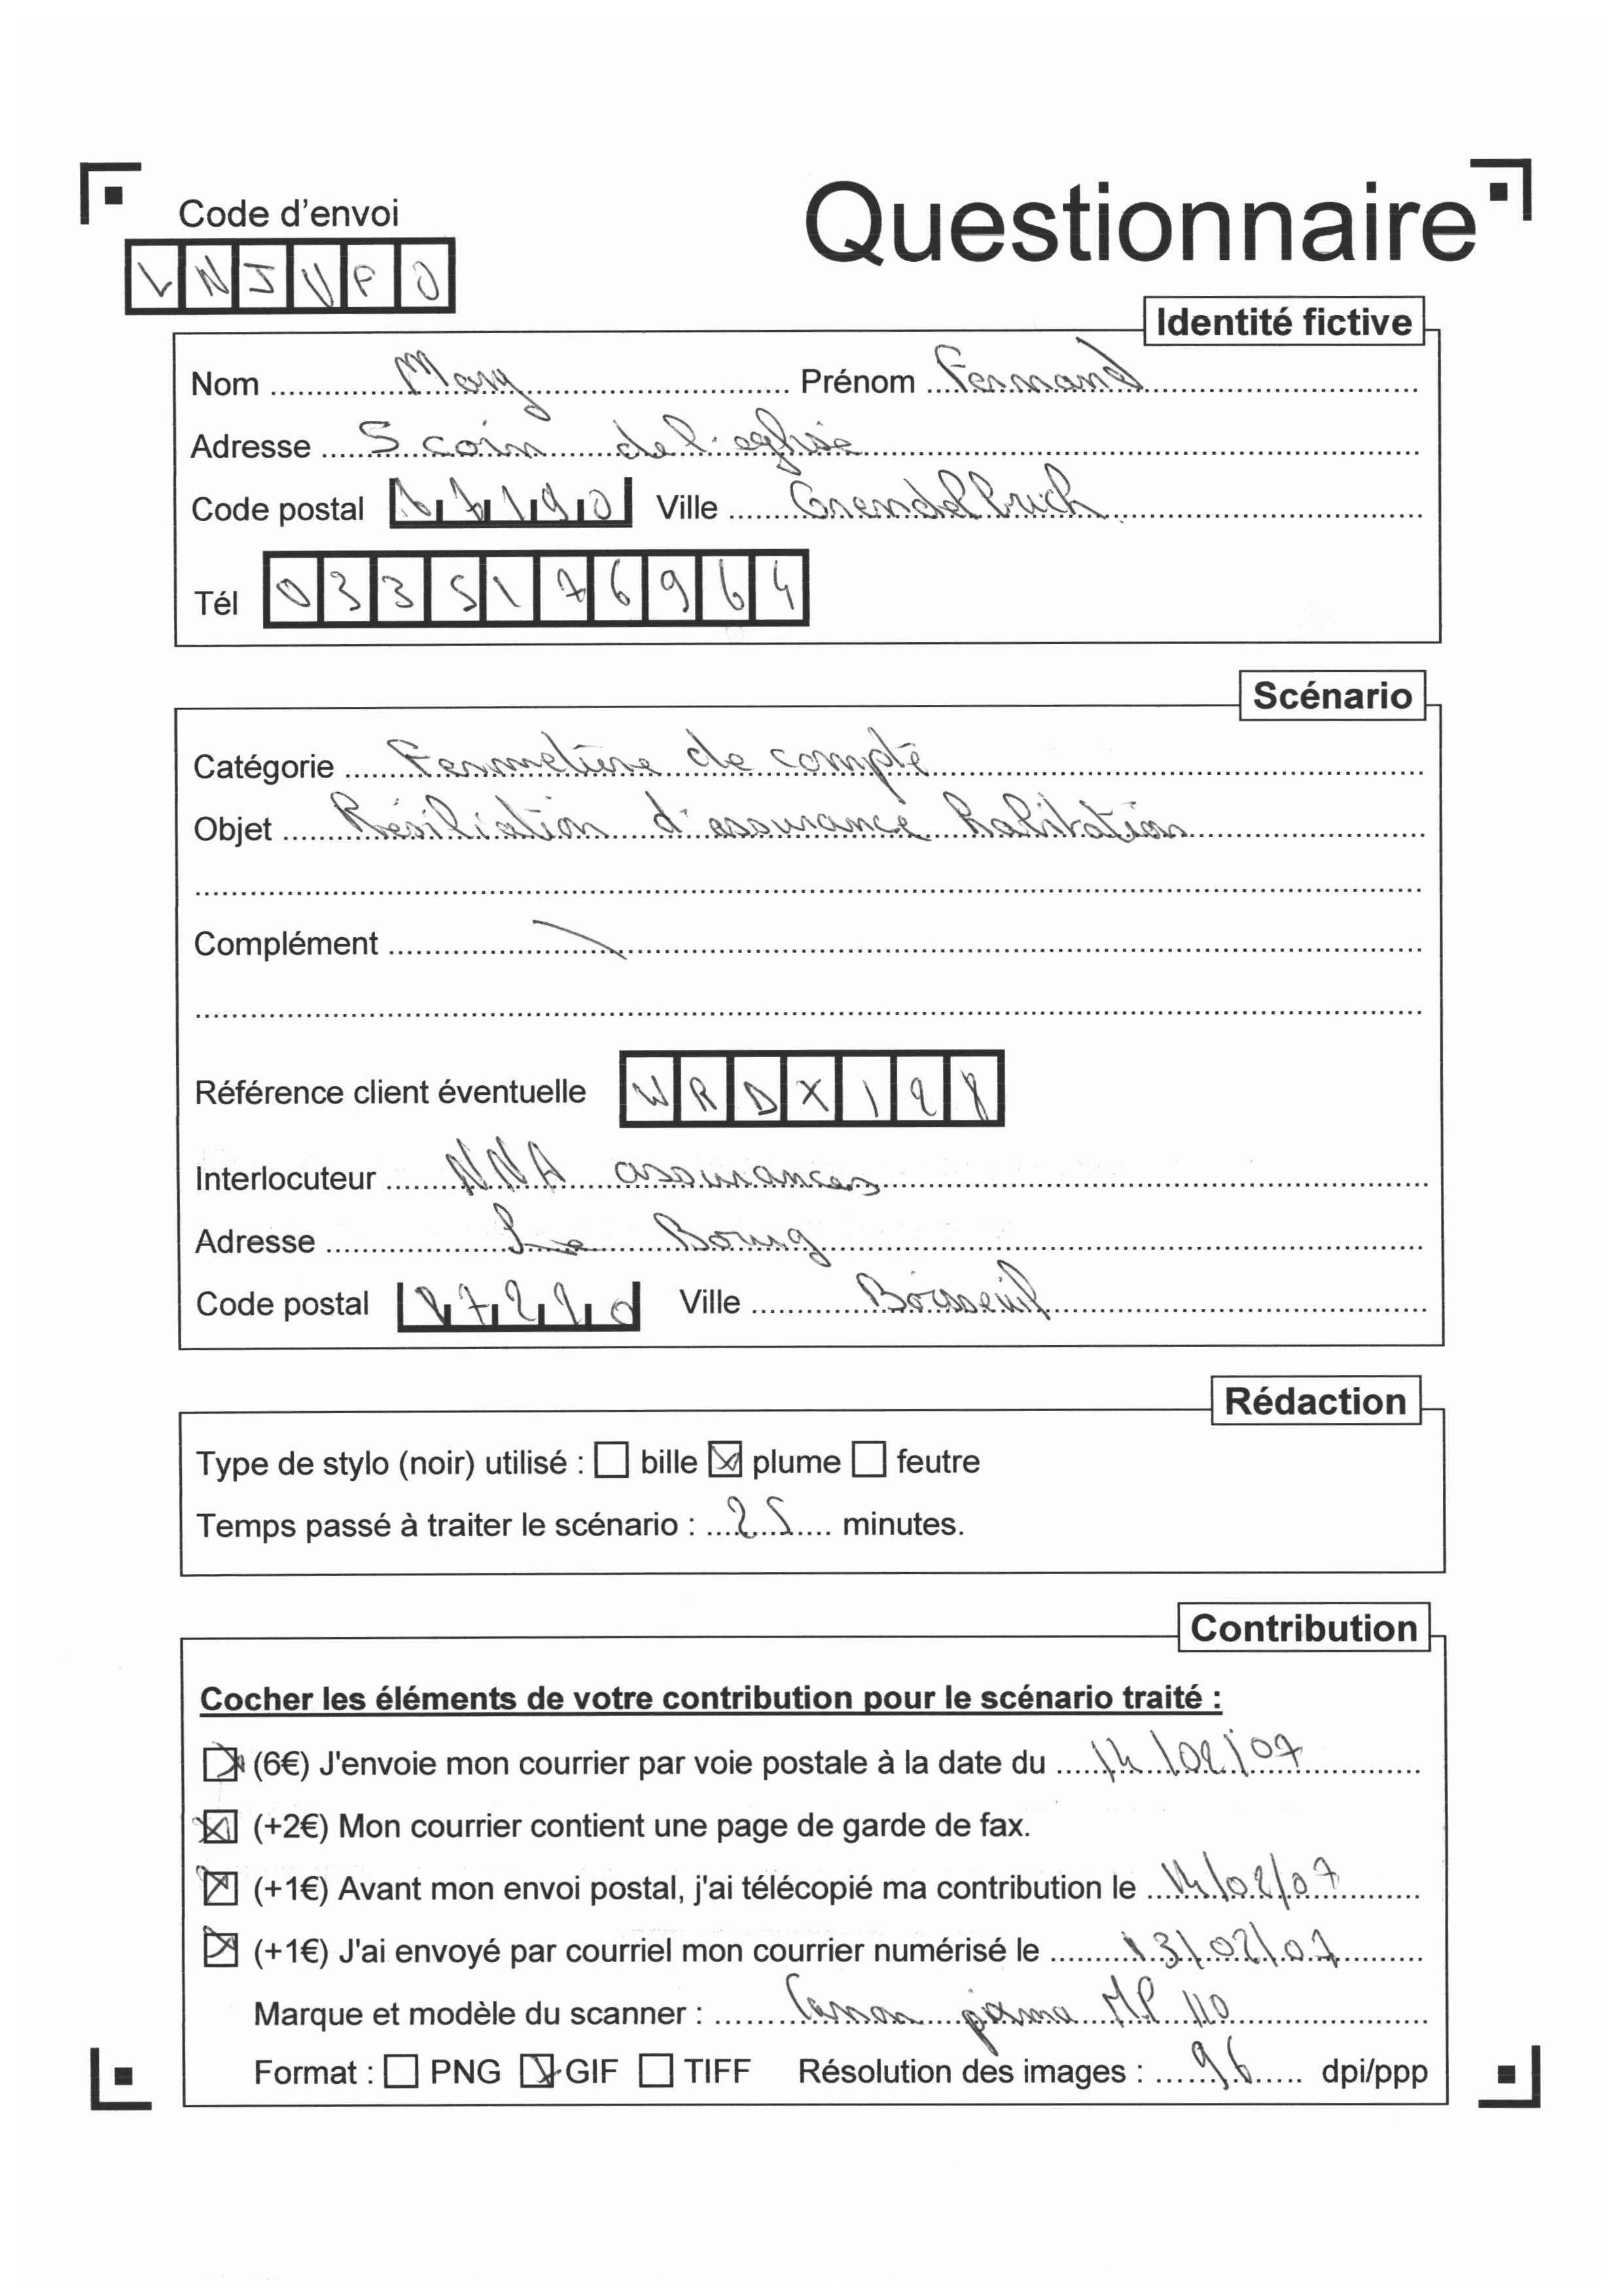 Code d'envoi
Questionnaire
L N J U P O
Identité fictive
Nom Mary Prénom Fernand
Adresse 5 coin de l'eglise
Code postal 67190 Ville Grendelbruch
Tél 0335176964
Scénario
Catégorie Fermeture de compte
Objet Résiliation d'assurance habitation
Complément
Référence client éventuelle WRDX198
Interlocuteur NNA assurances
Adresse Le Bourg
Code postal 87220 Ville Boisseuil
Rédaction
Type de stylo (noir) utilisé : bille plume feutre
Temps passé à traiter le scénario : 25 minutes.
Contribution
Cocher les éléments de votre contribution pour le scénario traité :
(6€) J'envoie mon courrier par voie postale à la date du 14/02/07
(+2€) Mon courrier contient une page de garde de fax.
(+1€) Avant mon envoi postal, j'ai télécopié ma contribution le 14/02/07
(+1€) J'ai envoyé par courriel mon courrier numérisé le 13/02/07
Marque et modèle du scanner : Canon MP 110
Format : PNG GIF TIFF Résolution des images : 96 dpi/ppp